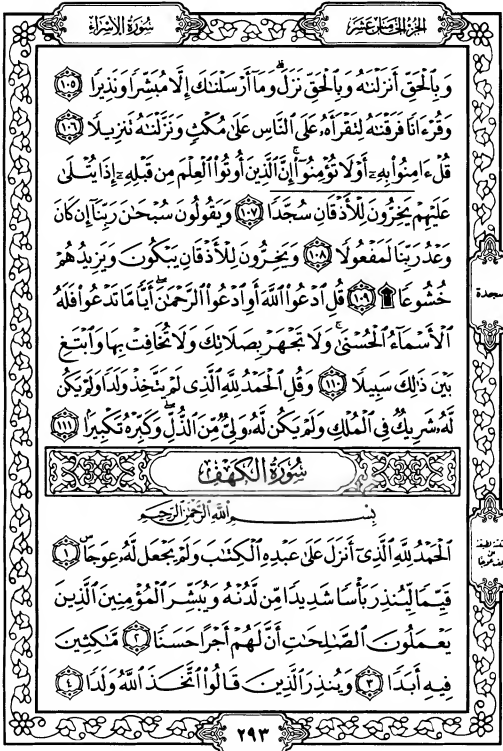 الجزء الخامس عشر
سورة الإسراء
وَبِٱلْحَقِّ أَنزَلْنَٰهُ وَبِٱلْحَقِّ نَزَلَ ۗ وَمَآ أَرْسَلْنَٰكَ إِلَّا مُبَشِّرًا وَنَذِيرًا ١٠٥
وَقُرْءَانًا فَرَقْنَٰهُ لِتَقْرَأَهُۥ عَلَى ٱلنَّاسِ عَلَىٰ مُكْثٍ وَنَزَّلْنَٰهُ تَنزِيلًا ١٠٦
قُلْ ءَامِنُوا۟ بِهِۦٓ أَوْ لَا تُؤْمِنُوٓا۟ ۚ إِنَّ ٱلَّذِينَ أُوتُوا۟ ٱلْعِلْمَ مِن قَبْلِهِۦٓ إِذَا يُتْلَىٰ
عَلَيْهِمْ يَخِرُّونَ لِلْأَذْقَانِ سُجَّدًا ١٠٧ وَيَقُولُونَ سُبْحَٰنَ رَبِّنَآ إِن كَانَ
وَعْدُ رَبِّنَا لَمَفْعُولًا ١٠٨ وَيَخِرُّونَ لِلْأَذْقَانِ يَبْكُونَ وَيَزِيدُهُمْ
خُشُوعًا ۩ ١٠٩ قُلِ ٱدْعُوا۟ ٱللَّهَ أَوِ ٱدْعُوا۟ ٱلرَّحْمَٰنَ ۖ أَيًّا مَّا تَدْعُوا۟ فَلَهُ
ٱلْأَسْمَآءُ ٱلْحُسْنَىٰ ۚ وَلَا تَجْهَرْ بِصَلَاتِكَ وَلَا تُخَافِتْ بِهَا وَٱبْتَغِ
بَيْنَ ذَٰلِكَ سَبِيلًا ١١٠ وَقُلِ ٱلْحَمْدُ لِلَّهِ ٱلَّذِى لَمْ يَتَّخِذْ وَلَدًا وَلَمْ يَكُن
لَّهُۥ شَرِيكٌ فِى ٱلْمُلْكِ وَلَمْ يَكُن لَّهُۥ وَلِىٌّ مِّنَ ٱلذُّلِّ ۖ وَكَبِّرْهُ تَكْبِيرًۢا ١١١
سُورَةُ الكَهْفِ
بِسْمِ ٱللَّهِ ٱلرَّحْمَٰنِ ٱلرَّحِيمِ
ٱلْحَمْدُ لِلَّهِ ٱلَّذِىٓ أَنزَلَ عَلَىٰ عَبْدِهِ ٱلْكِتَٰبَ وَلَمْ يَجْعَل لَّهُۥ عِوَجَا ۜ ١
قَيِّمًا لِّيُنذِرَ بَأْسًا شَدِيدًا مِّن لَّدُنْهُ وَيُبَشِّرَ ٱلْمُؤْمِنِينَ ٱلَّذِينَ
يَعْمَلُونَ ٱلصَّٰلِحَٰتِ أَنَّ لَهُمْ أَجْرًا حَسَنًا ٢ مَّٰكِثِينَ
فِيهِ أَبَدًا ٣ وَيُنذِرَ ٱلَّذِينَ قَالُوا۟ ٱتَّخَذَ ٱللَّهُ وَلَدًا ٤
سجدة
٢٩٣